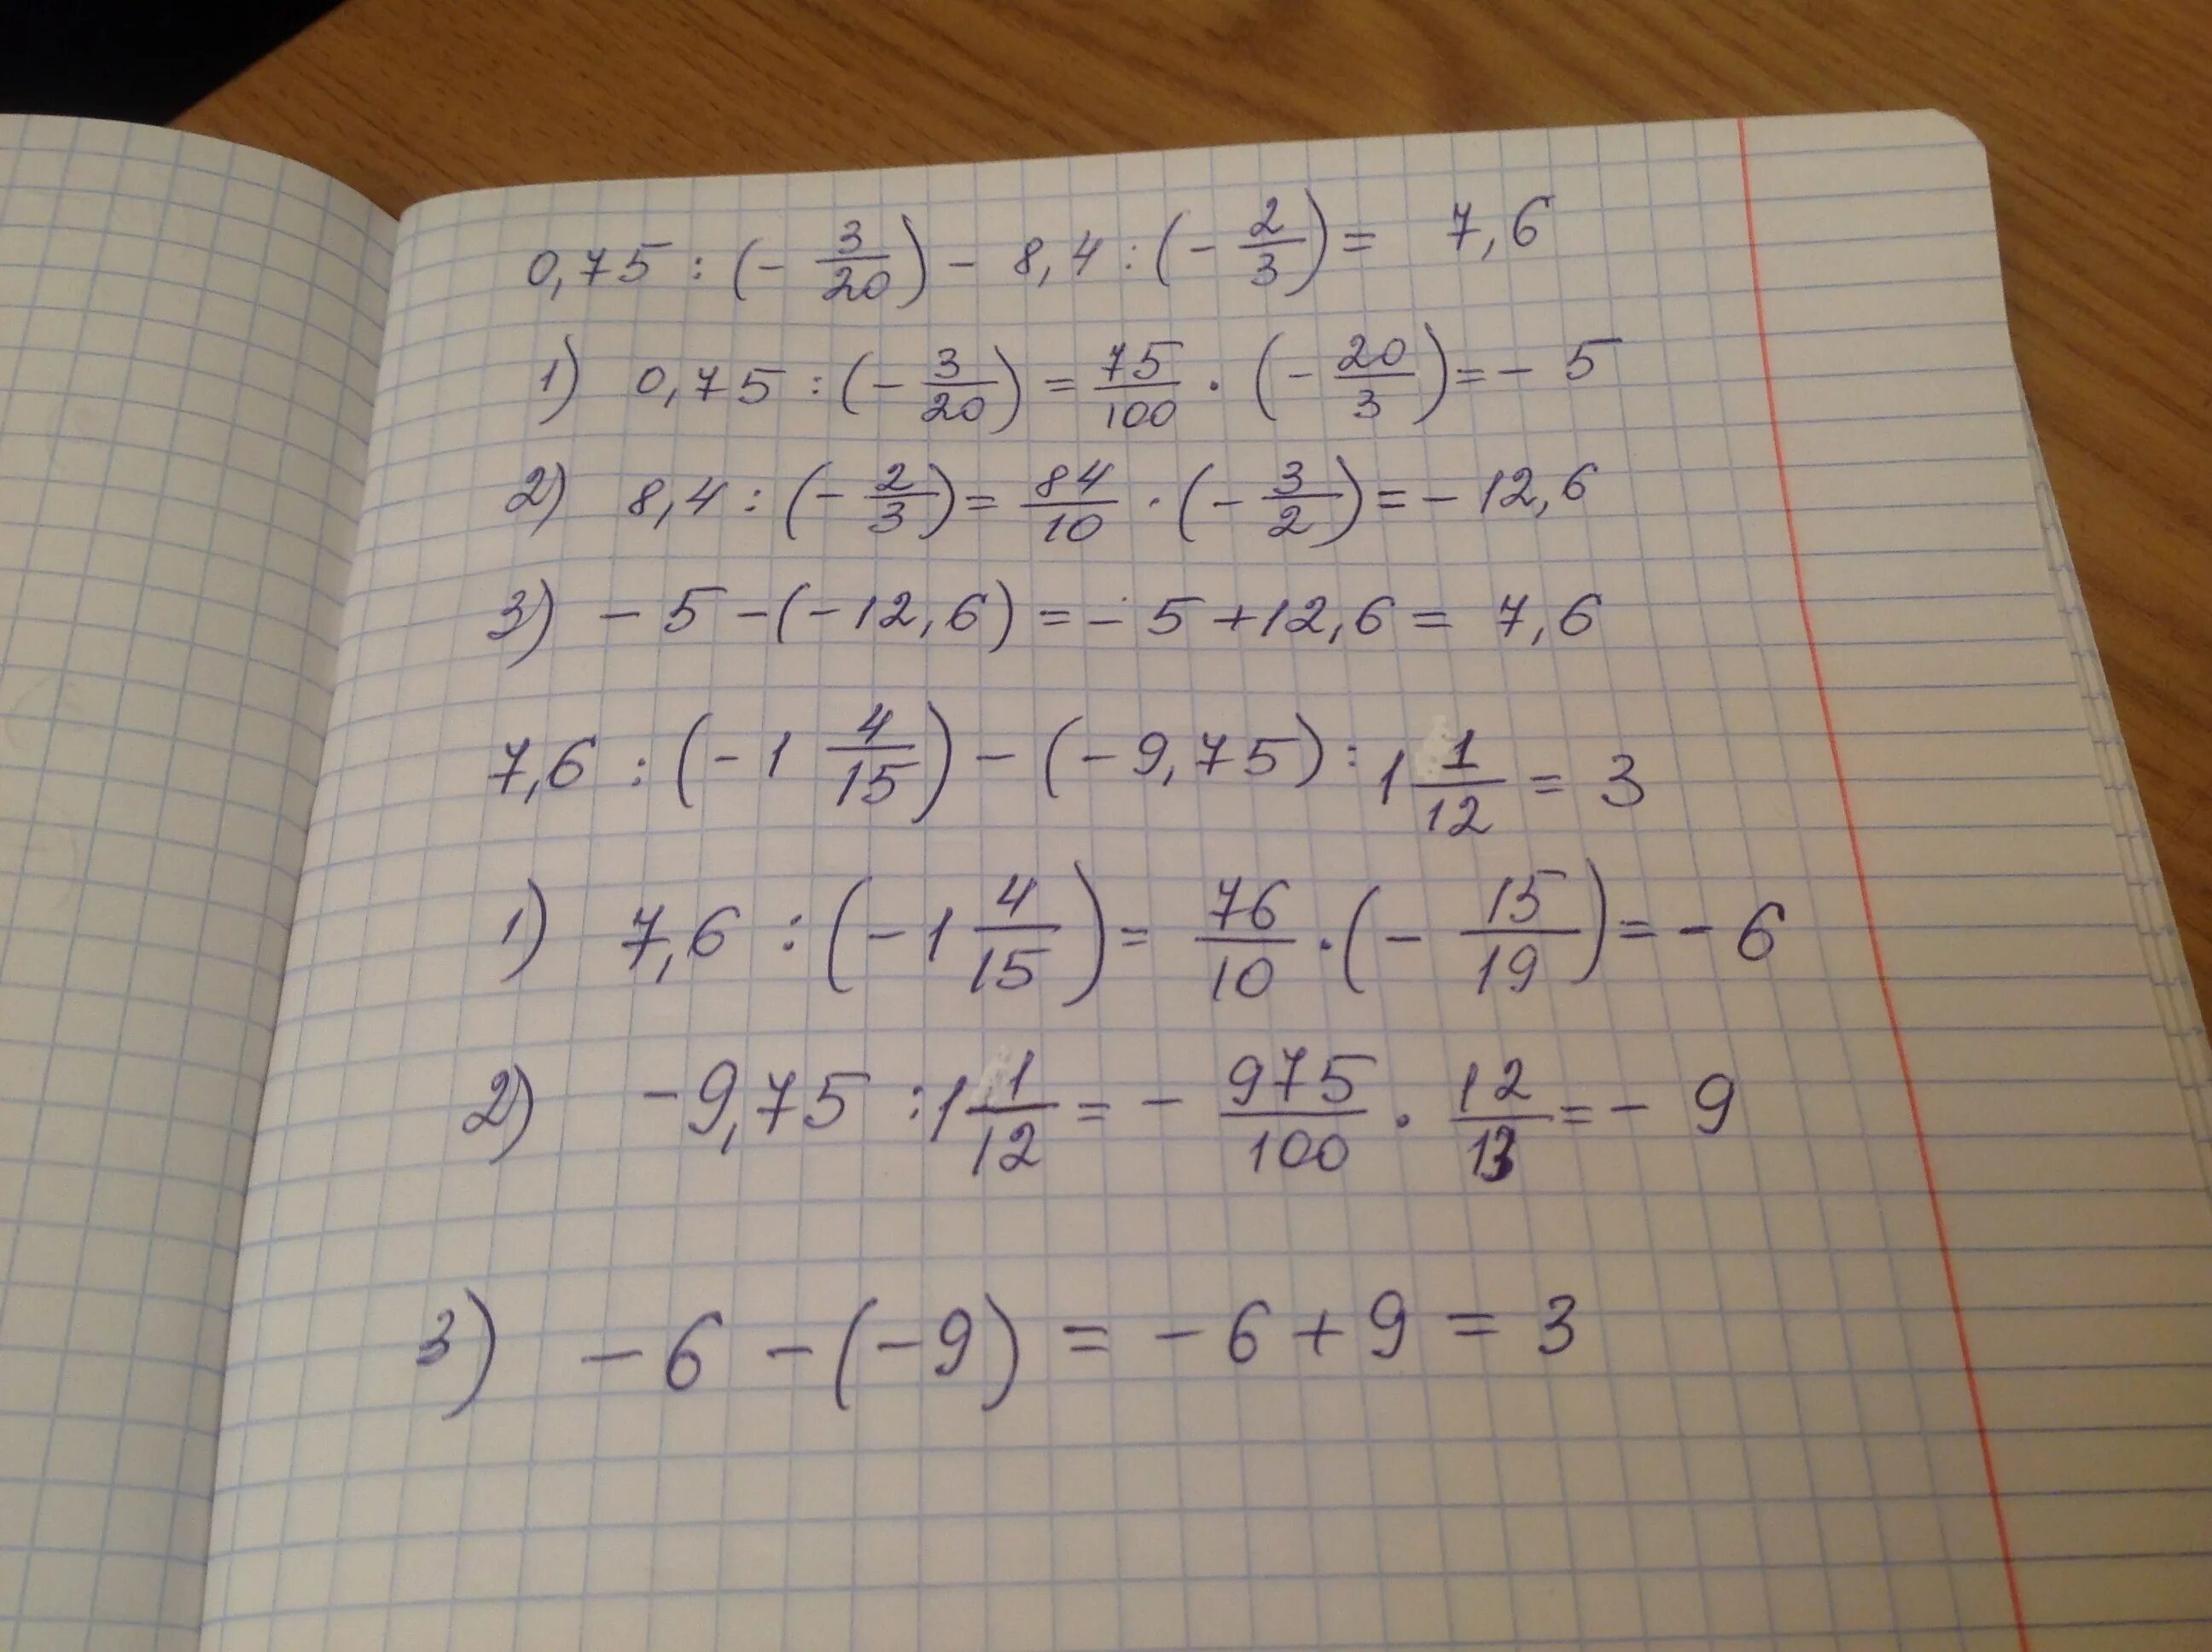 0,75 : (- 3/20) - 8,4 : (- 2/3) = 7,6
1) 0,75 : (- 3/20) = 75/100 · (- 20/3) = - 5
2) 8,4 : (- 2/3) = 84/10 · (- 3/2) = - 12,6
3) - 5 - (-12,6) = - 5 + 12,6 = 7,6
7,6 : (- 1 4/15) - (- 9,75) : 1 1/12 = 3
1) 7,6 : (- 1 4/15) = 76/10 · (- 15/19) = - 6
2) - 9,75 : 1 1/12 = - 975/100 · 12/13 = - 9
3) - 6 - (- 9) = - 6 + 9 = 3